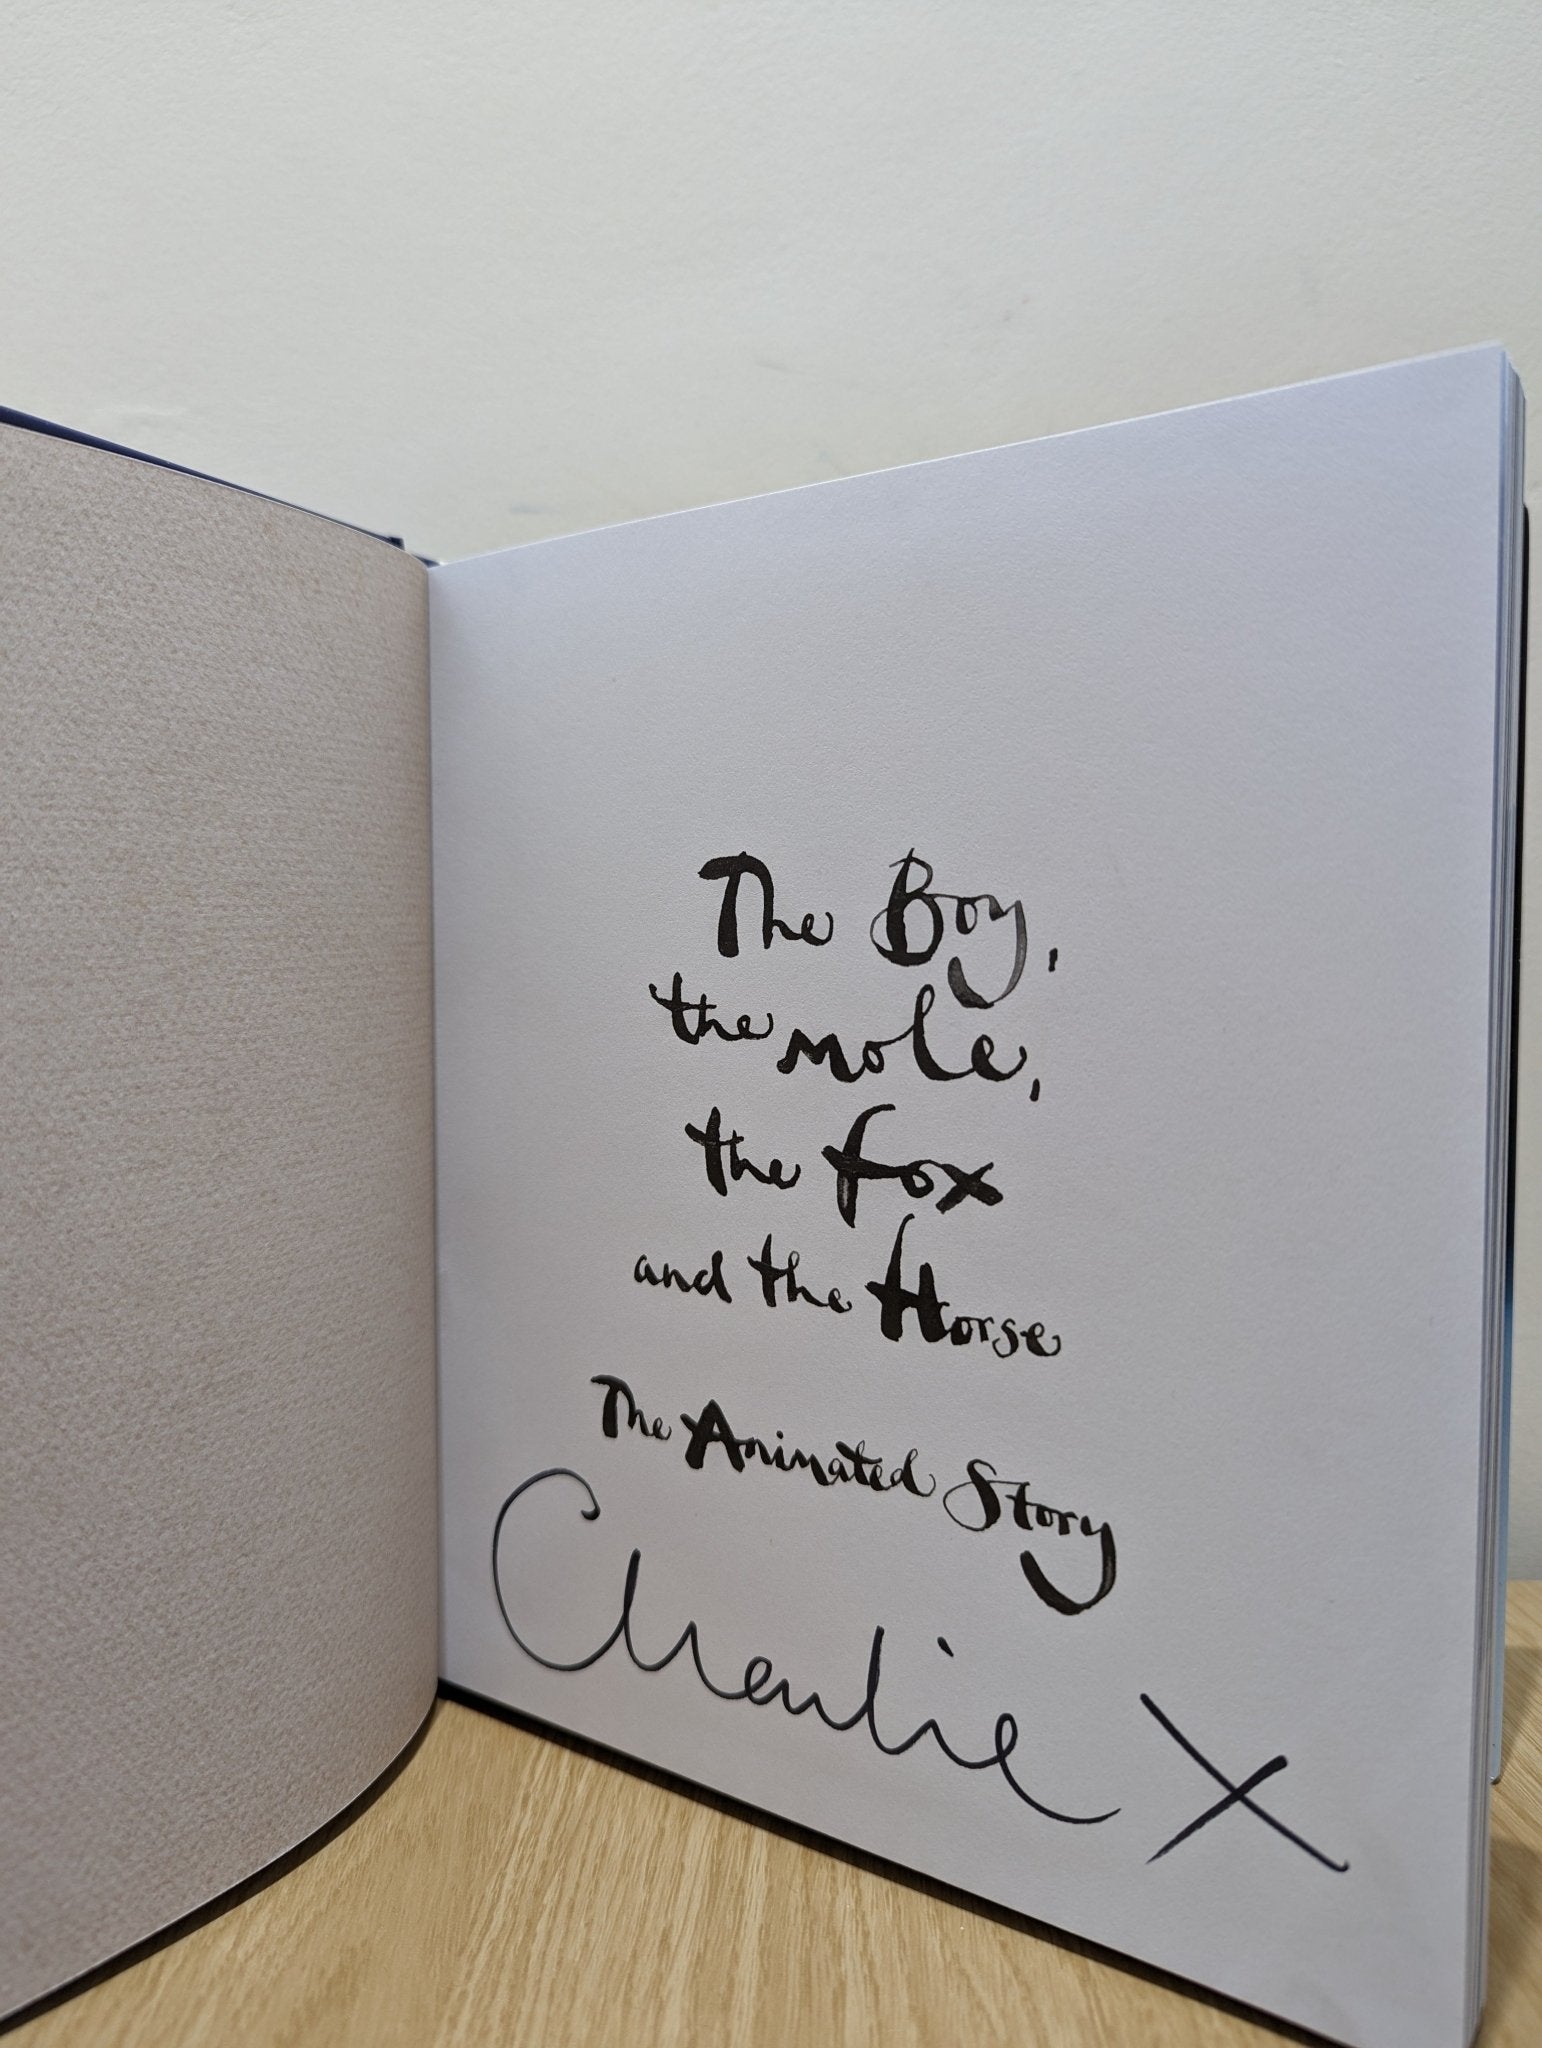 The Boy,
the mole,
the fox
and the Horse
The Animated Story
Charlie X